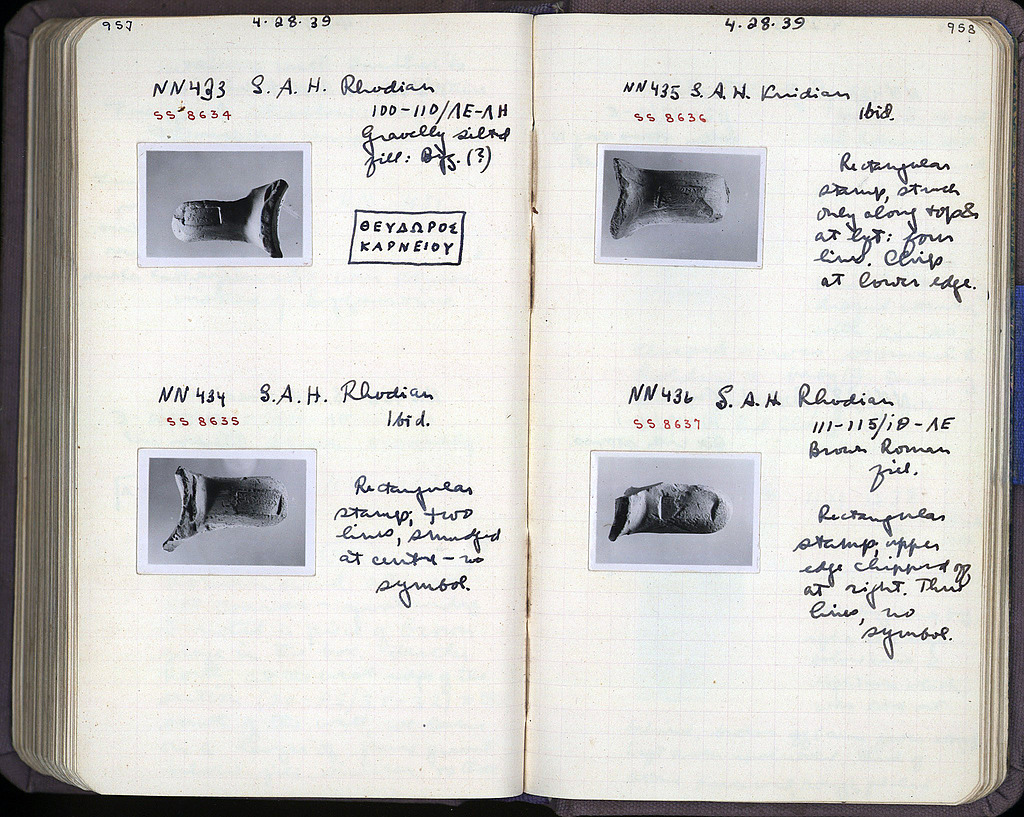 957
4.28.39
NN433 S. A. H. Rhodian
SS 8634
100-110/ΛΕ-ΛΗ
Gravelly silted
fill: Byz. (?)
ΘΕΥΔΩΡΟΣ
ΚΑΡΝΕΙΟΥ
NN 434 S. A. H. Rhodian
SS 8635
Ibid.
Rectangular
stamp, two
lines, smudged
at centre - no
symbol.
4.28.39
958
NN435 S. A. H. Knidian
SS 8636
Ibid.
Rectangular
stamp, struck
only along top &
at left: four
lines. Chip
at lower edge.
NN 436 S. A. H. Rhodian
SS 8637
111-115/ΙΘ-ΛΕ
Brown Roman
fill.
Rectangular
stamp, upper
edge chipped off
at right. Three
lines, no
symbol.